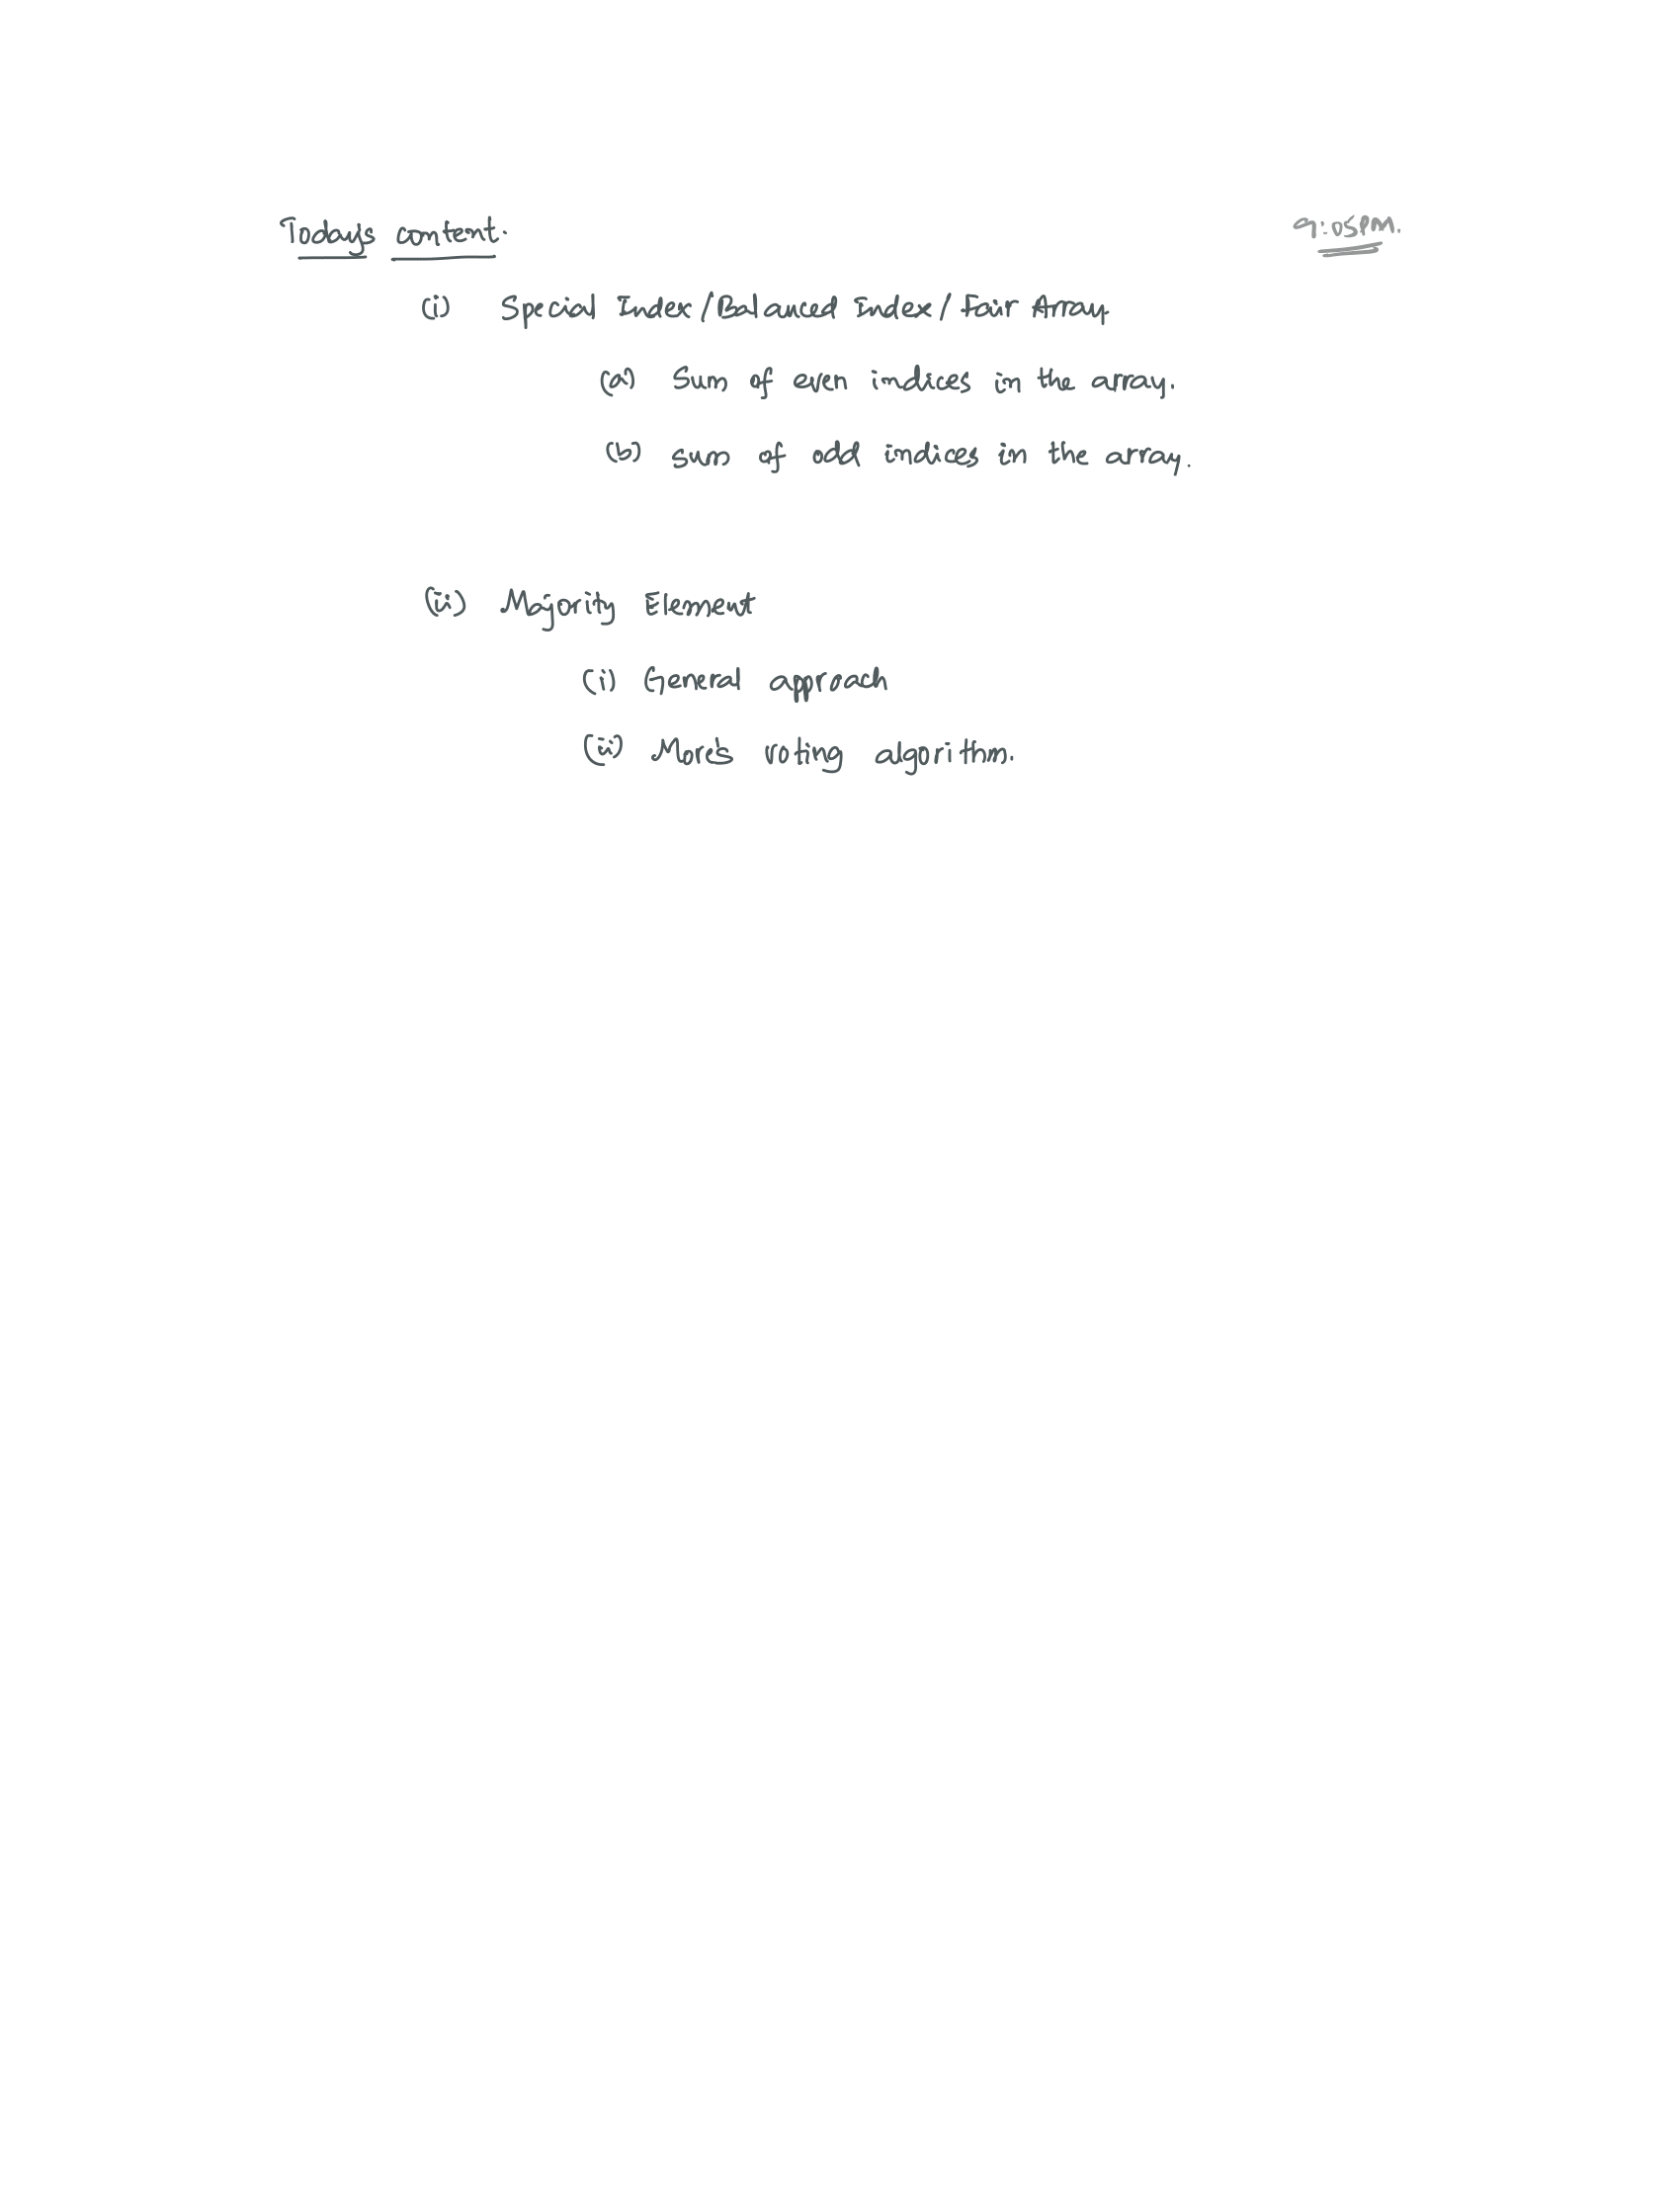 Todays content.
9:05PM.
(i) Special Index/Balanced Index/Fair Array
(a) Sum of even indices in the array.
(b) sum of odd indices in the array.
(ii) Majority Element
(i) General approach
(ii) More's voting algorithm.